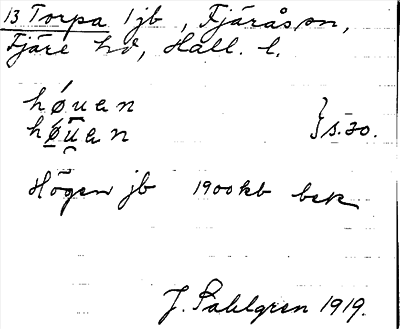 13 Torpa 1 jb, Fjärås sn,
Fjäre hd, Hall. l.
hǿuen
hǿ̲u̲̯en } s. 30.
Högen jb 1900 kb bek
J. Sahlgren 1919.